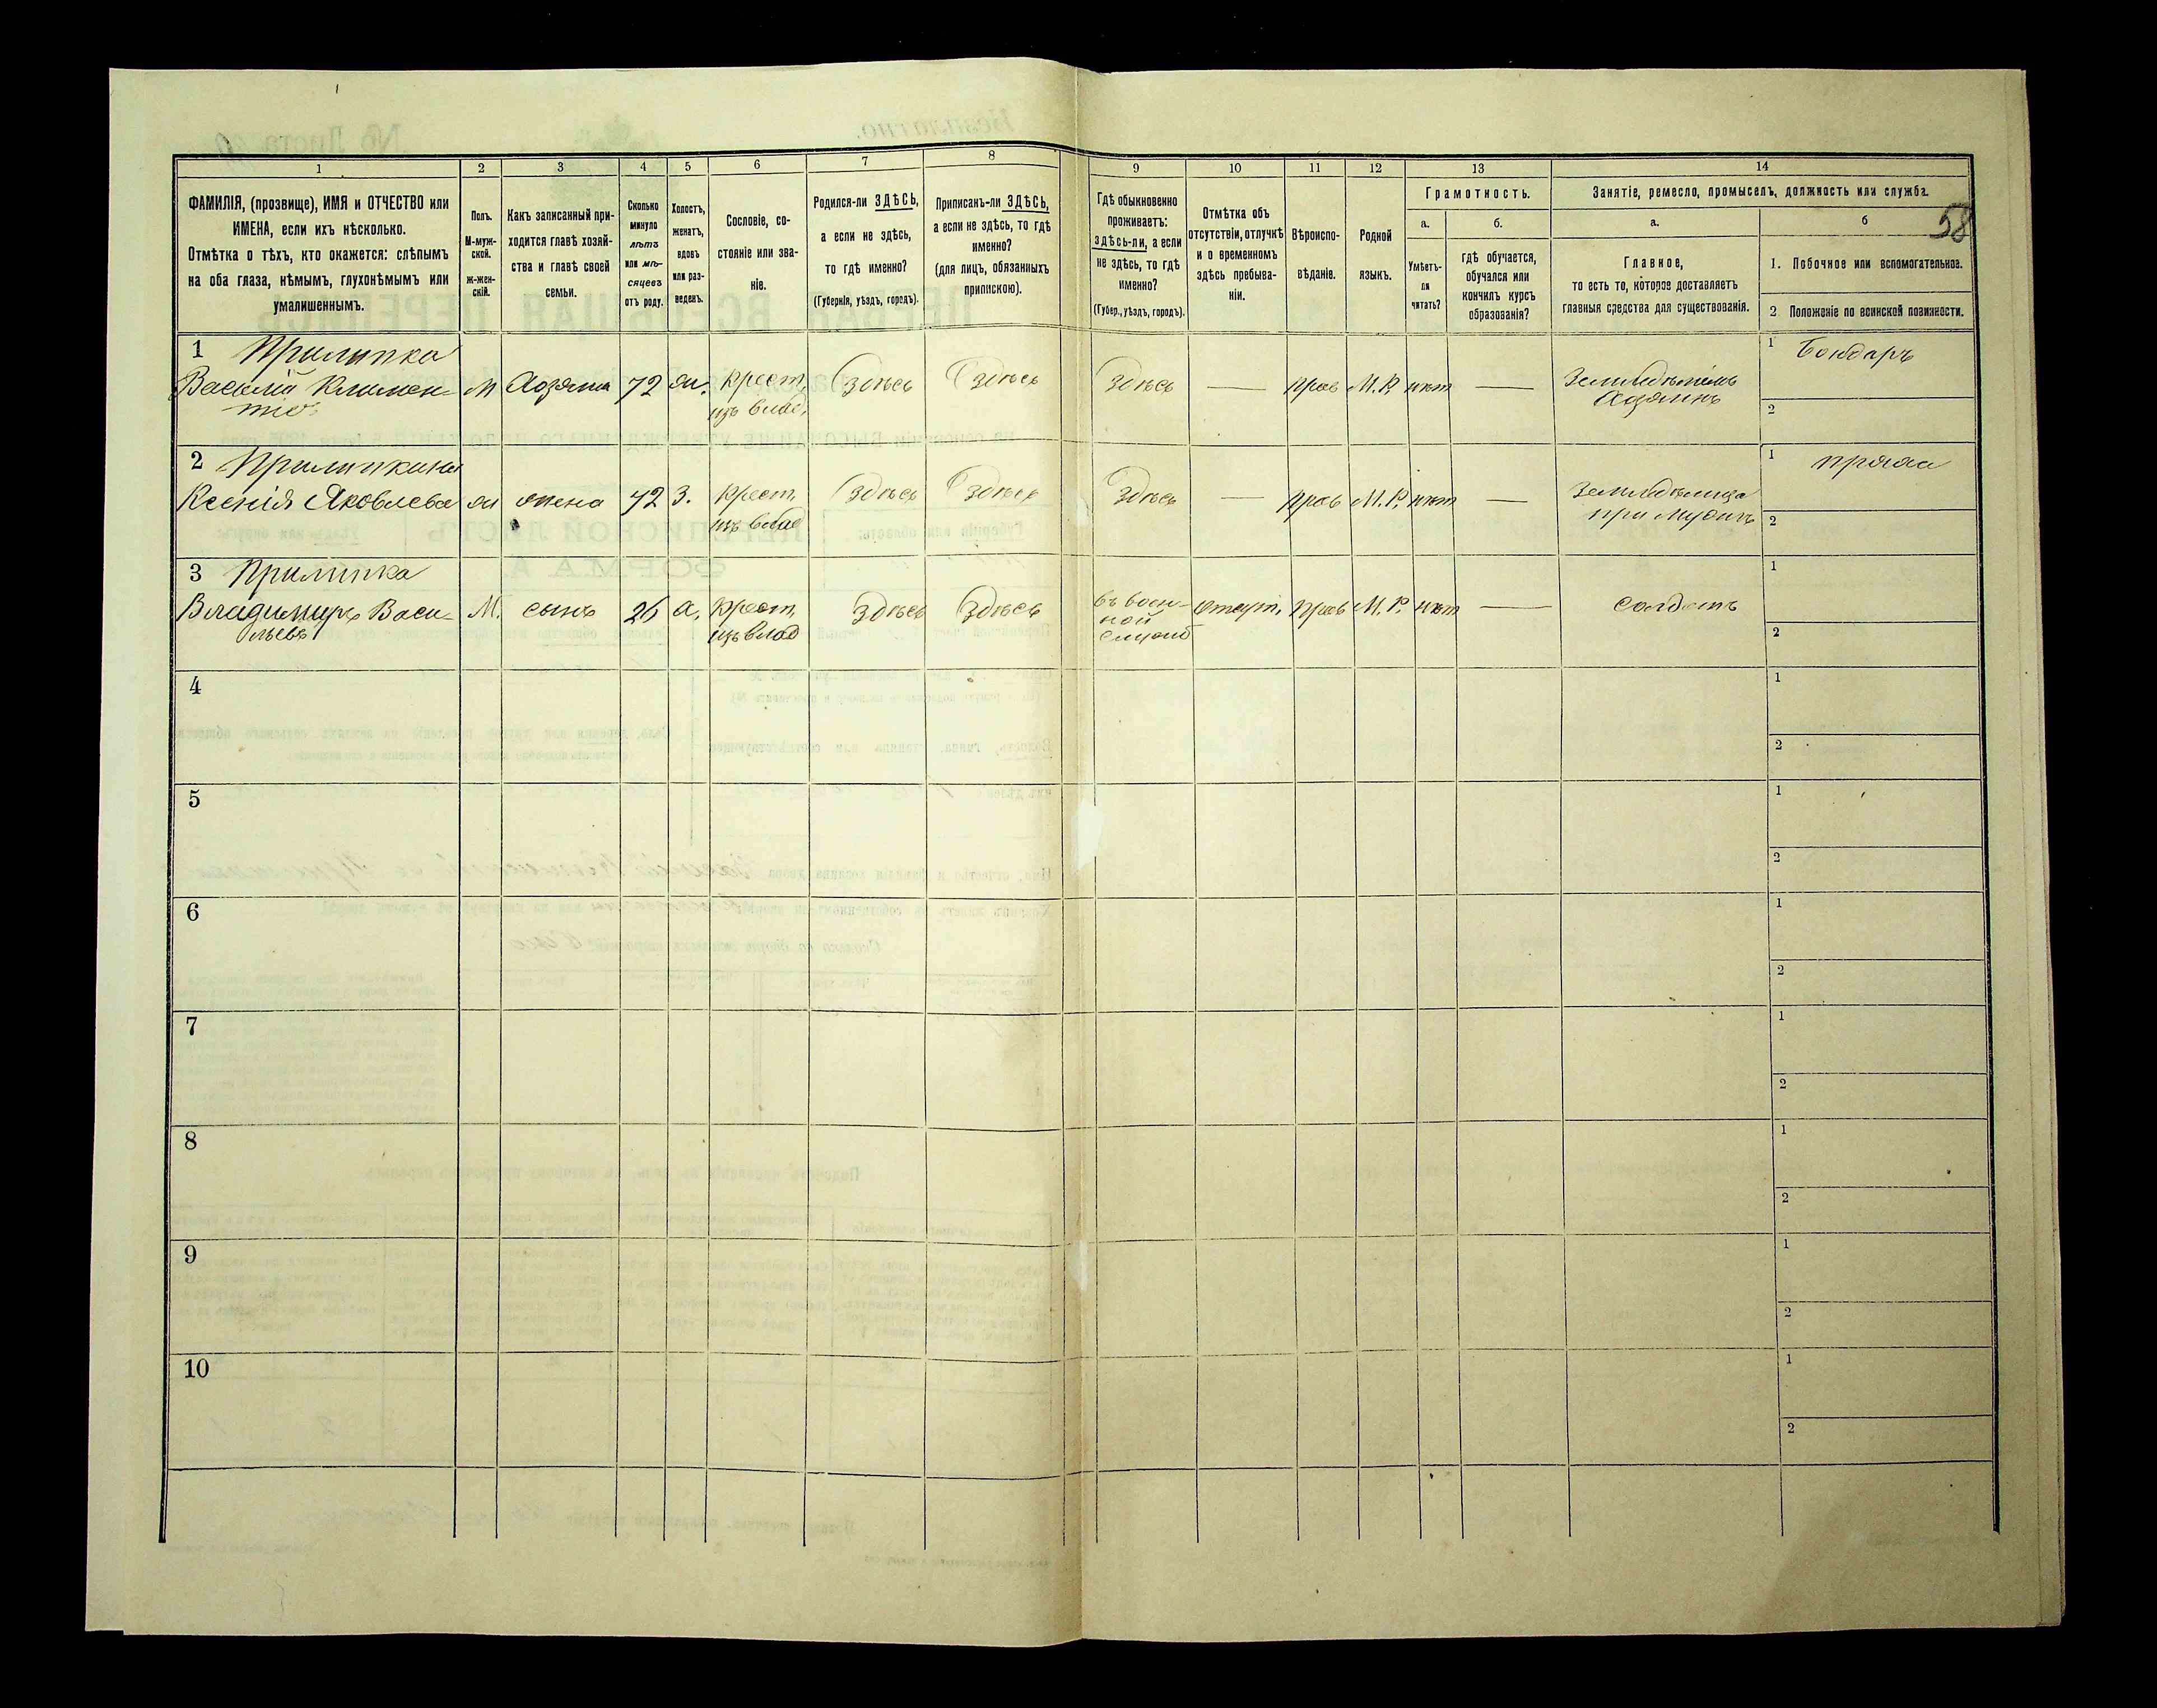 58
1 2 3 4 5 6 7 8 9 10 11 12 13 14
ФАМИЛІЯ, (прозвище), ИМЯ и ОТЧЕСТВО или
ИМЕНА, если ихъ нѣсколько.
Отмѣтка о тѣхъ, кто окажется: слѣпымъ
на оба глаза, нѣмымъ, глухонѣмымъ или
умалишеннымъ.
Полъ.
М-муж-
ской.
ж-жен-
скій.
Какъ записанный при-
ходится главѣ хозяй-
ства и главѣ своей
семьи.
Сколько
минуло
лѣтъ
или мѣ-
сяцевъ
отъ роду.
Холостъ,
женатъ,
вдовъ
или раз-
веденъ.
Сословіе, со-
стояніе или зва-
ніе.
Родился-ли ЗДѢСЬ,
а если не здѣсь,
то гдѣ именно?
(Губернія, уѣздъ, городъ).
Приписанъ-ли ЗДѢСЬ,
а если не здѣсь, то гдѣ
именно?
(для лицъ, обязанныхъ
припискою).
Гдѣ обыкновенно
проживаетъ:
здѣсь-ли, а если
не здѣсь, то гдѣ
именно?
(Губер., уѣздъ, городъ).
Отмѣтка объ
отсутствіи, отлучкѣ
и о временномъ
здѣсь пребыва-
ніи.
Вѣроиспо-
вѣданіе.
Родной
языкъ.
Грамотность.
а.
Умѣетъ-
ли
читать?
б.
гдѣ обучается,
обучался или
кончилъ курсъ
образованія?
Занятіе, ремесло, промыселъ, должность или служба.
а.
Главное,
то есть то, которое доставляетъ
главныя средства для существованія.
б
1. Побочное или вспомогательное.
2. Положеніе по воинской повинности.
1 Прилипка
Василій Климен-
тіев
М Хозяин 72 ж. крест. Здѣсь Здѣсь Здѣсь — прав М.Р. нѣт — Земледѣлецъ 1 Бондарь
изъ влад. Хозяинъ 2
2 Прилипкина
Ксенія Яковлева ж жена 72 З. крест. Здѣсь Здѣсь Здѣсь — прав М.Р. нѣт — Земледѣлица 1 пряха
изъ влад при мужѣ 2
3 Прилипка
Владимиръ Васи-
льевъ
М. сынъ 26 х. крест. Здѣсь Здѣсь въ воен- отсут. прав М.Р. нѣт — солдатъ 1
изъ влад ной 2
службѣ
4 1
2
5 1
2
6 1
2
7 1
2
8 1
2
9 1
2
10 1
2